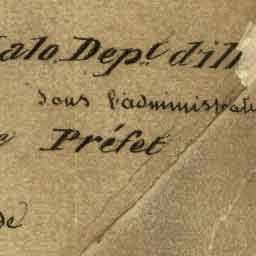 alo Dep.t d'Il
sous l'administrat
e Préfet
de